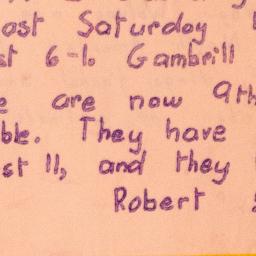 ost Saturday
st 6-1. Gambrill
e are now 9th
ble. They have
st 11, and they
Robert